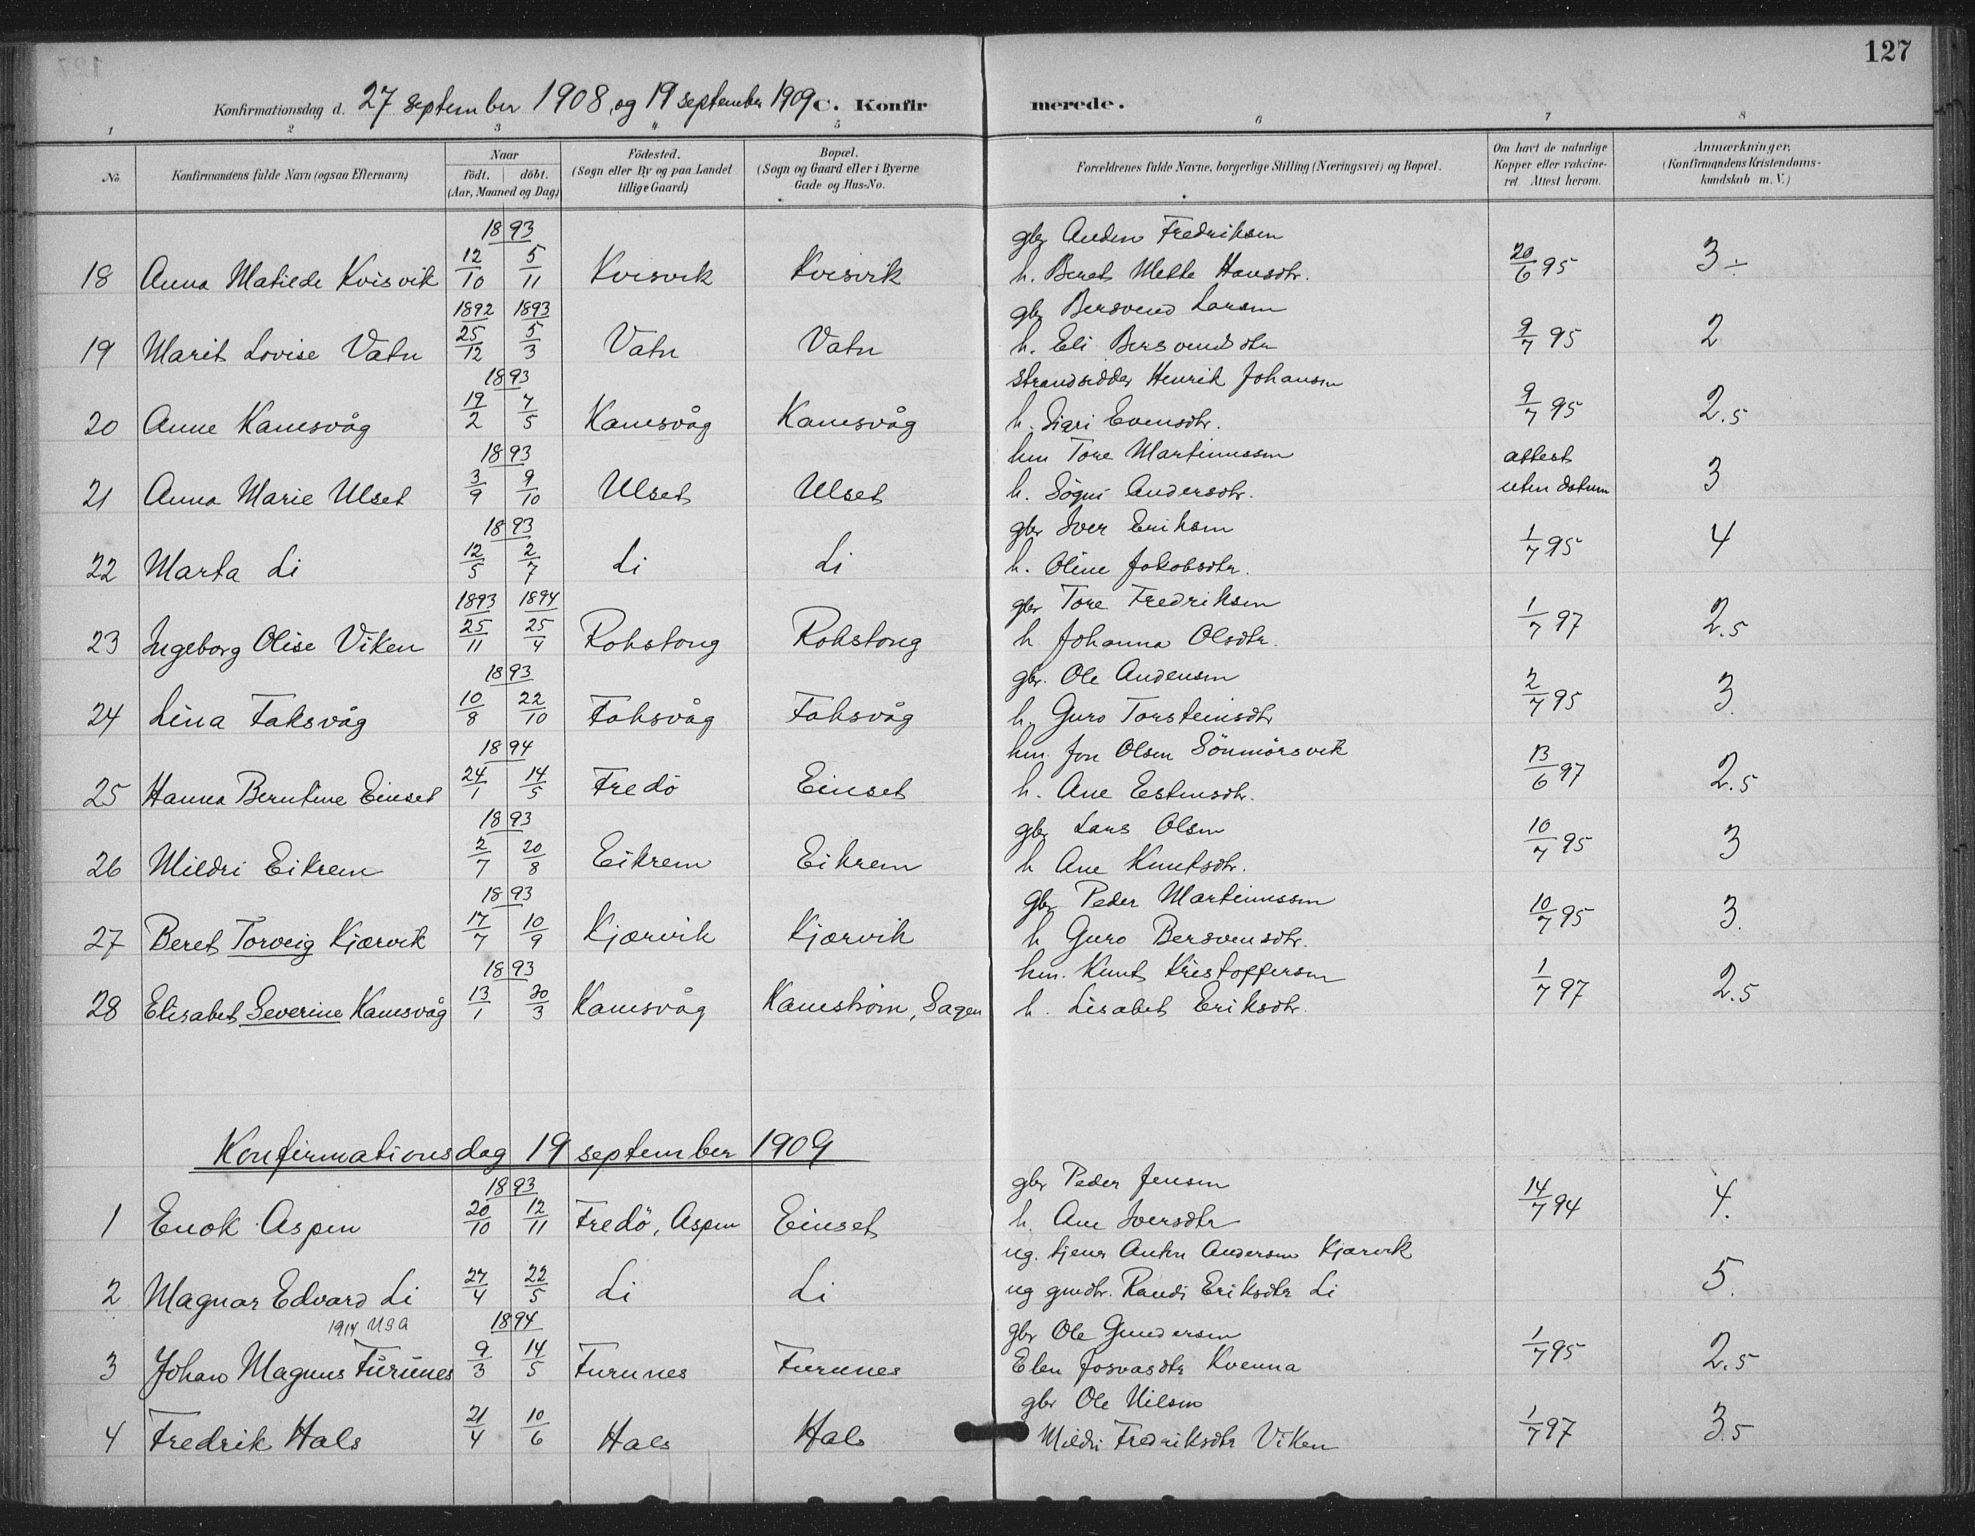 127
Konfirmationsdag d. 27 september 1908, og 19 september 1909 C. Konfirmerede.
1 2 3 4 5 6 7 8
No. Konfirmandens fulde Navn (ogsaa Efternavn) Naar födt. döbt. (Aar, Maaned og Dag) Födested. (Sogn eller By og paa Landet tillige Gaard) Bopæl. (Sogn og Gaard eller i Byerne Gade og Hus-No. Forældrenes fulde Navne, borgerlige Stilling (Næringsvei) og Bopæl. Om havt de naturlige Kopper eller vakcineret. Attest herom. Anmærkninger, (Konfirmandens Kristendomskundskab m. V.)
1893 gbr Anders Fredriksen
18 Anna Matilde Kvisvik 12/10 5/11 Kvisvik Kvisvik h. Beret Mette Hansdtr. 20/6 95 3 ÷
1892 1893 gbr Bersvend Larsen
19 Marit Lovise Vatn 25/12 5/3 Vatn Vatn h. Eli Bersvendsdtr 9/7 95 2
1893 strandsidder Henrik Johansen
20 Anne Kamsvåg 19/2 7/5 Kamsvåg Kamsvåg h. Siari Evensdtr. 9/7 95 2.5
1893 hm Tore Martinussen attest
21 Anna Marie Ulset 3/9 9/10 Ulset Ulset h. Andersdtr. uten datum 3
1893 gbr Iver Eriksen
22 Marta Li 12/5 2/7 Li Li h. Oline Jakobsdtr. 1/7 95 4
1893 1894 gbr Tore Fredriksen
23 Ingeborg Olise Viken 25/11 25/4 Rokstong Rokstong h Johanna Olsdtr. 1/7 97 2.5
1893 gbr. Ole Andersen
24 Lina Foksvåg 10/8 22/10 Foksvåg Foksvåg h. Guro Torsteinsdtr 2/7 95 3.
1894 hm. Jon Olsen Sönmörsvik
25 Hanna Berntine Einset 24/1 14/5 Fredö Einset h. Ane Estensdtr. 13/6 97 2.5
1893 gbr Lars Olsen
26 Mildri Eikrem 2/7 20/8 Eikrem Eikrem h Ane Knutsdtr. 10/7 95 3
1893 gbr Peder Martinussen
27 Beret Torveig Kjærvik 17/7 10/9 Kjærvik Kjærvik h Guro Bersvensdtr. 10/7 95 3.
1893 hm. Knut Kristoffersen
28 Elisabet Severine Kamsvåg 13/1 30/3 Kamsvåg Kamström, Sagen h. Lisabet Eriksdtr. 1/7 97 2.5
Konfirmationsdag 19 september 1909
1893 gbr Peder Jensen
1 Enok Aspen 20/10 12/11 Fredö, Aspen Einset h. Ane Iversdtr 14/7 94 4.
ug. tjener Anton Andersen Kjærvik
2 Magnar Edvard Li 27/4 22/5 Li Li ug gmdtr. Randi Eriksdtr Li 5.
1914 USA 1894 gbr Ole Gundersen
3 Johan Magnus Furunes 9/3 14/5 Furunes Furunes Elen Josvasdtr Kvenna 1/7 95 2.5
gbr Ole Nilsen
4 Fredrik Hals 21/4 10/6 Hals Hals Mildri Fredriksdtr Viken 1/7 97 3.5